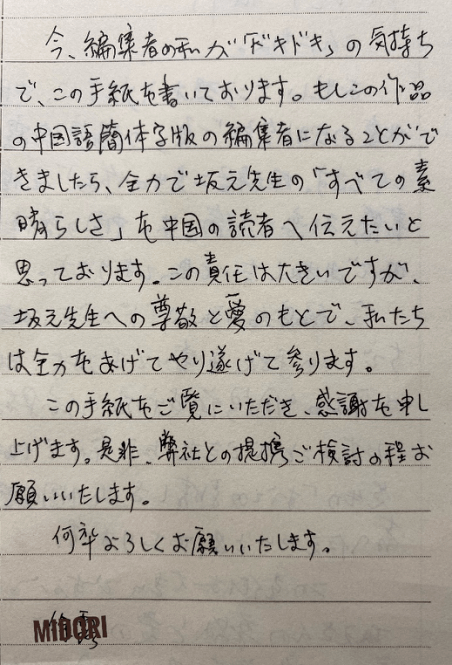 今、編集者の私が「ドキドキ」の気持ち
で、この手紙を書いております。もしこの作品
の中国語簡体字版の編集者になることがで
きましたら、全力で坂元先生の「すべての素
晴らしさ」を中国の読者へ伝えたいと
思っております。この責任は大きいですが、
坂元先生への尊敬と愛のもとで、私たち
は全力をあげてやり遂げて参ります。
この手紙をご覧にいただき、感謝を申し
上げます。是非、弊社との提携ご検討の程お
願いいたします。
何卒よろしくお願いいたします。
MIDORI